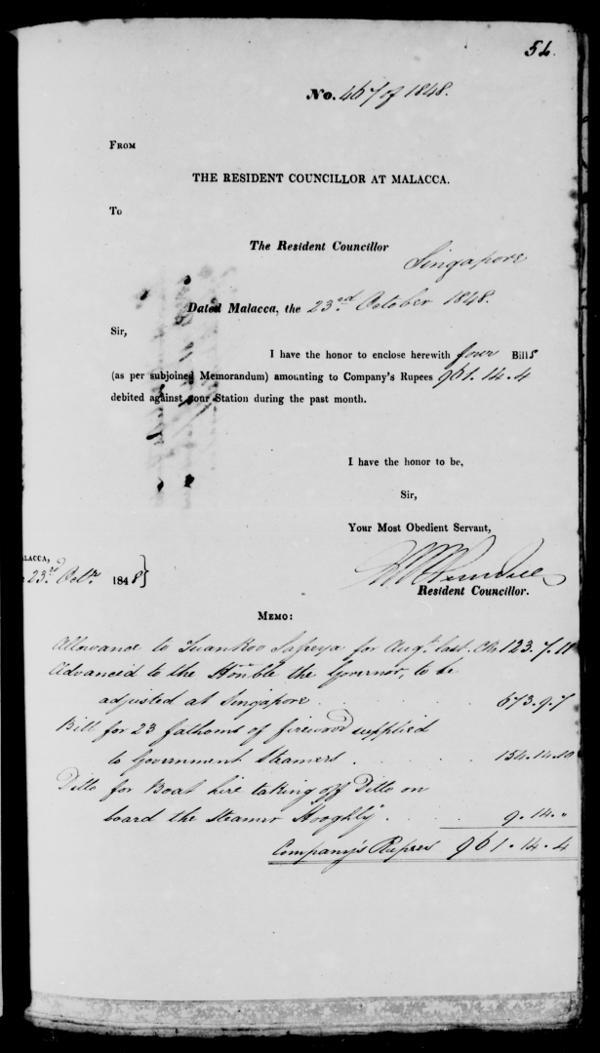 54.
No. 467 of 1848.
FROM
THE RESIDENT COUNCILLOR AT MALACCA.
To
The Resident Councillor
Singapore
Dated Malacca, the 23rd October 1848.
Sir,
I have the honor to enclose herewith four Bills
(as per subjoined Memorandum) amounting to Company's Rupees 961.14.4
debited against your Station during the past month.
I have the honor to be,
Sir,
Your Most Obedient Servant,
ALACCA,
23rd Octr. 1848}
Resident Councillor.
MEMO:
Allowance to Tuankoo Safeya for Augt. last. CRs 123.7.11
Advanced to the Honble the Governor, to be
adjusted at Singapore . . . . 673.9.7
Bill for 23 fathoms of firewood supplied
to Government Steamers . . . . 154.14.10
Ditto for Boat hire taking off Ditto on
board the Steamer Hooghly . . . 9.14.„
Company's Rupees 961.14.4